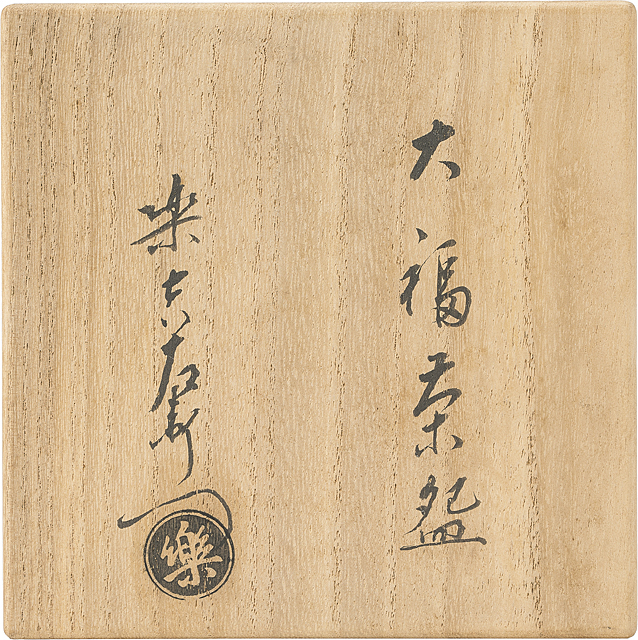 大福茶盌
楽吉左衛門
樂